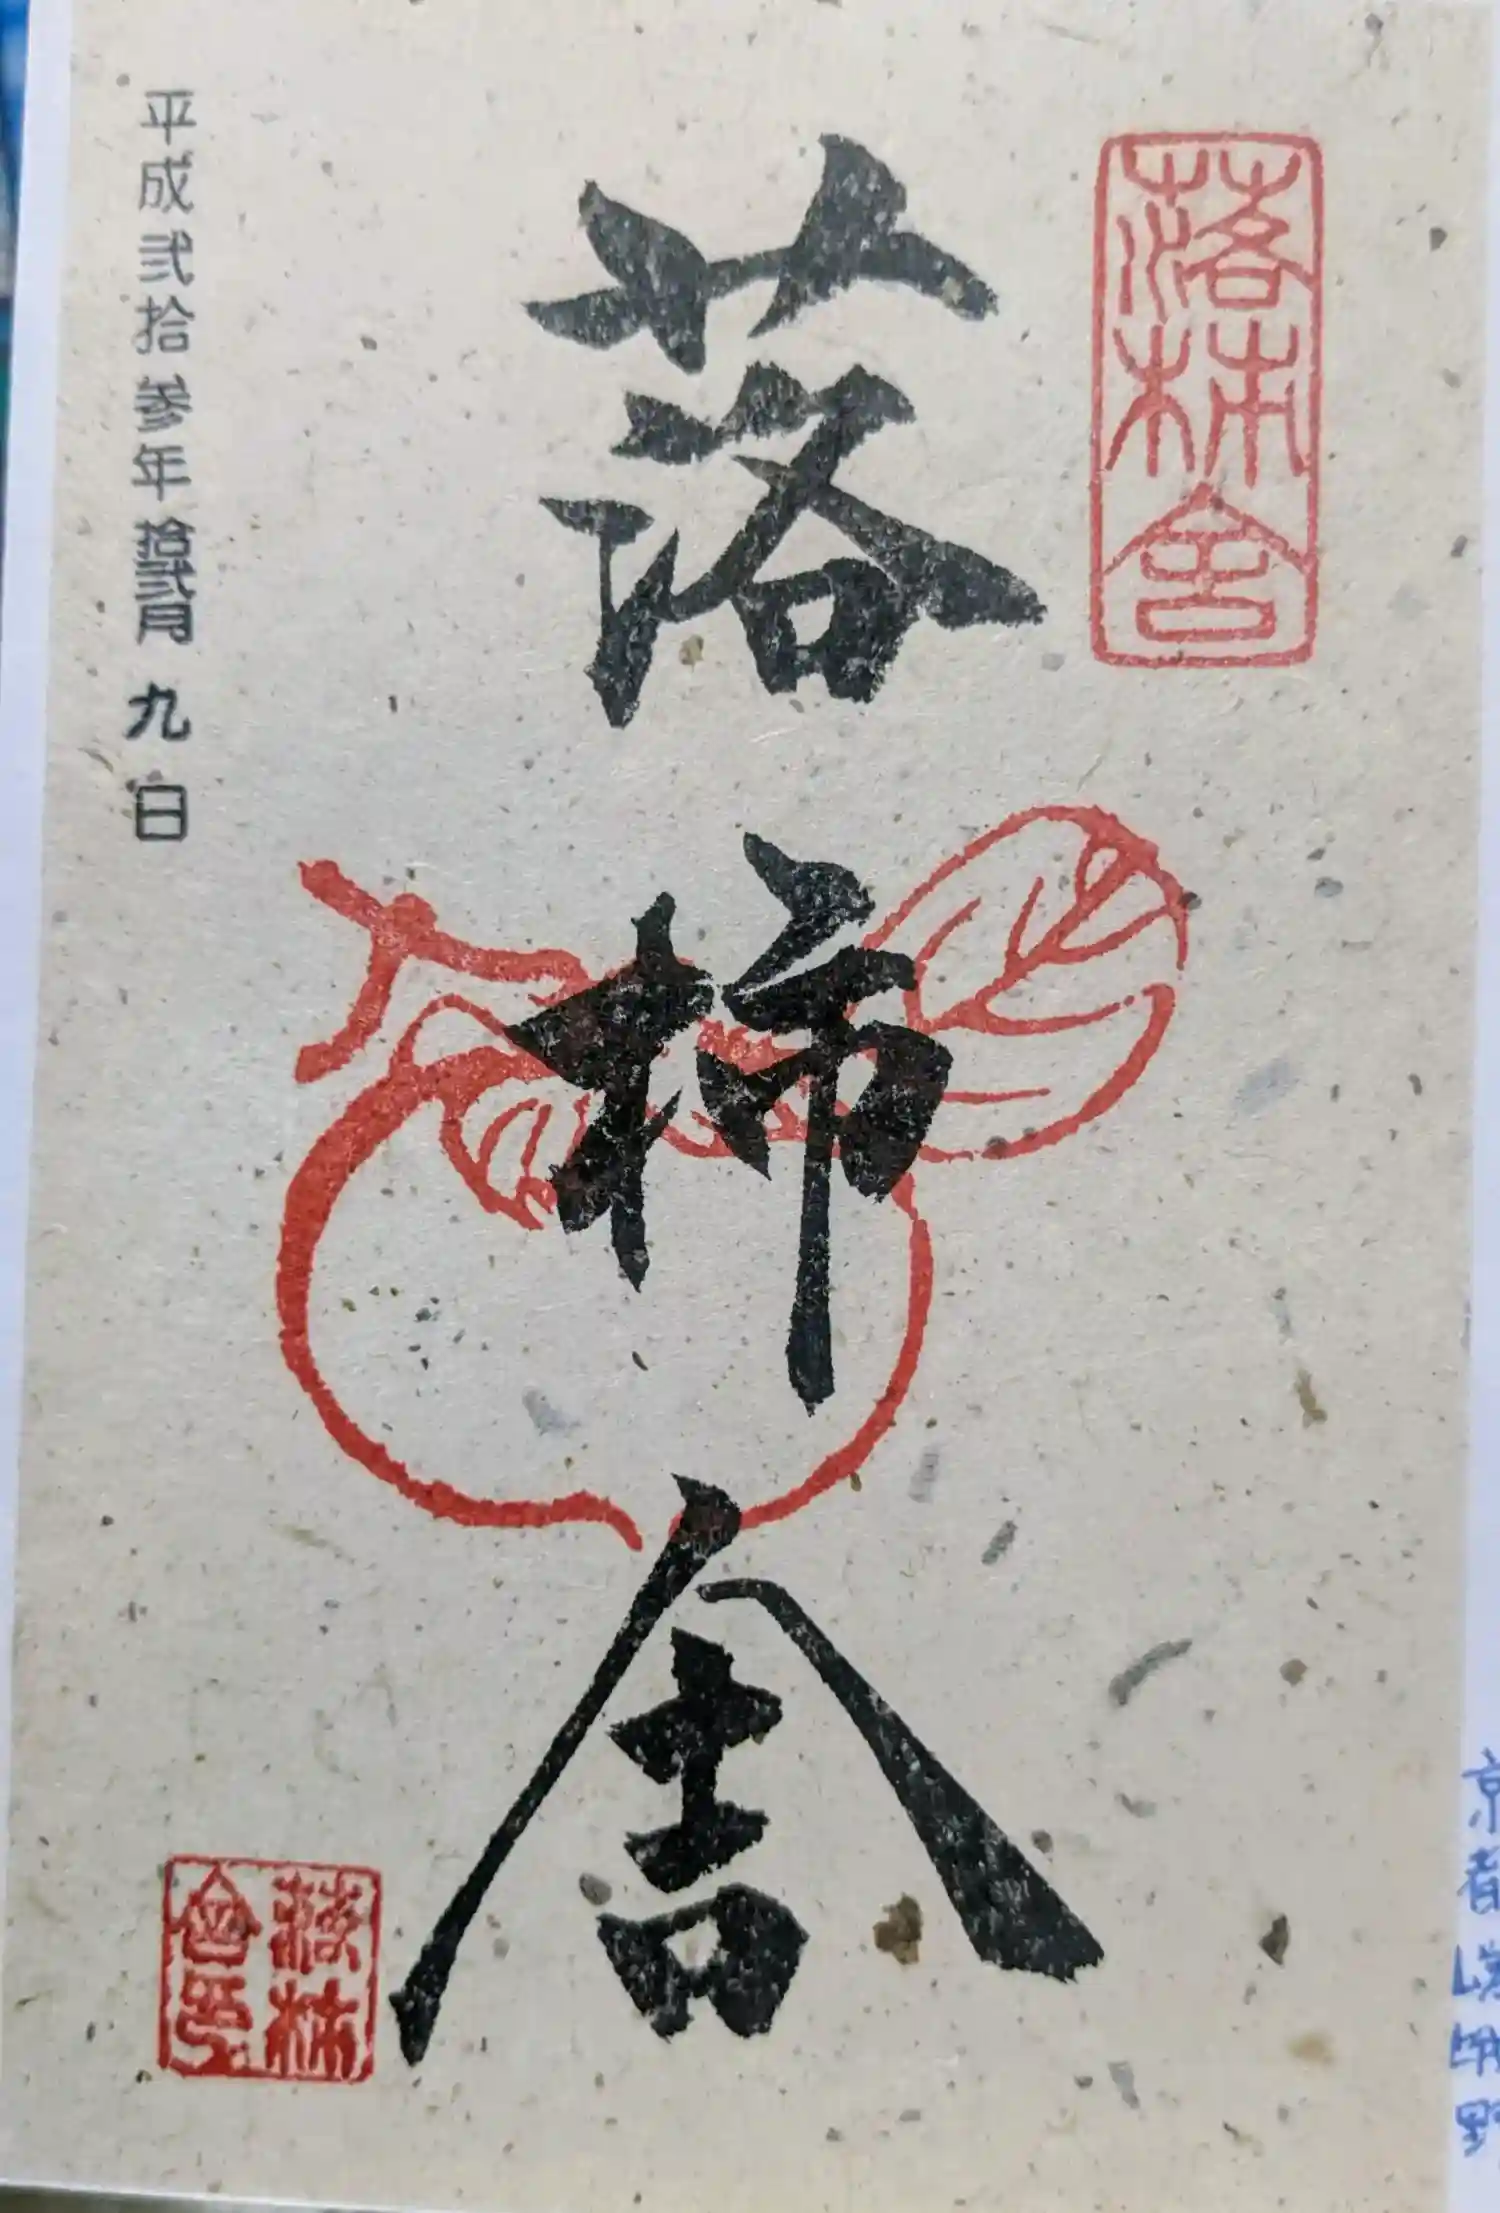 落柿舎
落柿舎
平成弐拾参年拾弐月九日
落柿
舎印
京都嵯峨野